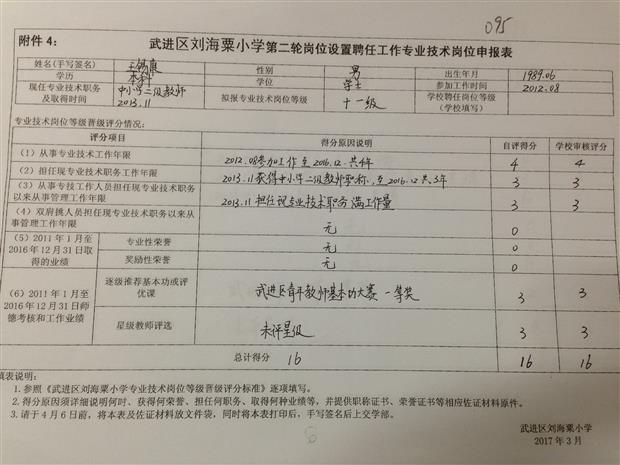 095
附件 4： 武进区刘海粟小学第二轮岗位设置聘任工作专业技术岗位申报表
姓名(手写签名) 王锡康 性别 男 出生年月 1989.06
学历 本科 学位 学士 参加工作时间 2012.08
现任专业技术职务及取得时间 中小学二级教师 2013.11 拟报专业技术岗位等级 十一级 学校聘任岗位等级（学校填写）
专业技术岗位等级晋级评分情况：
评分项目 得分原因说明 自评得分 学校审核评分
（1）从事专业技术工作年限 2012.08参加工作至2016.12.共4年 4 4
（2）担任现专业技术职务工作年限 2013.11获得中小学二级教师职称，至2016.12共3年 3 3
（3）从事专技工作人员担任现专业技术职务以来从事管理工作年限 2013.11担任现专业技术职务 满工作量 3 3
（4）双肩挑人员担任现专业技术职务以来从事管理工作年限 无 0
（5）2011 年 1 月至 2016 年 12 月 31 日取得的业绩 专业性荣誉 无 0
奖励性荣誉 无 0
（6）2011 年 1 月至 2016 年 12 月 31 日师德考核和工作业绩 逐级推荐基本功或评优课 武进区青年教师基本功大赛 一等奖 3 3
星级教师评选 未评星级 3 3
总计得分 16 16 16
填表说明：
1.参照《武进区刘海粟小学专业技术岗位等级晋级评分标准》逐项填写。
2.得分原因须详细说明何时、获得何荣誉、担任何职务、取得何种业绩等，并提供职称证书、荣誉证书等相应佐证材料原件。
3.请于 4 月 6 日前，将本表及佐证材料放文件袋，同时将本表打印后，手写签名后上交学部。
武进区刘海粟小学
2017 年 3 月